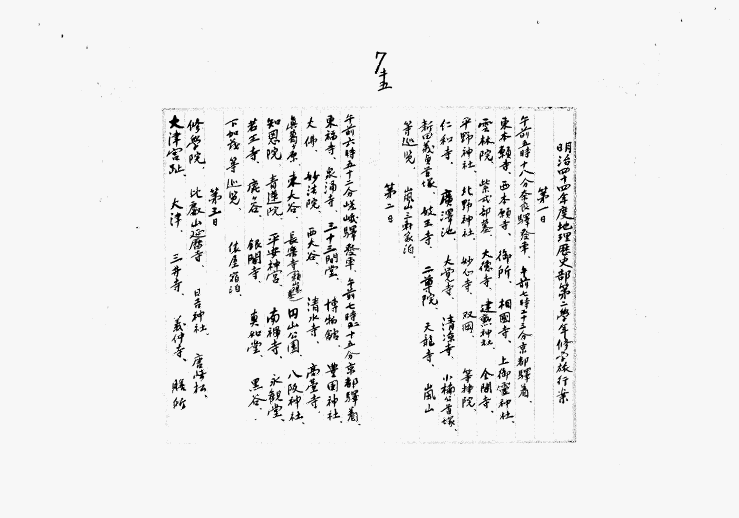 7
明治四十四年度地理歴史部第二學年修学旅行案
第一日
午前五時十八分奈良驛發車、午前七時二十三分京都驛着、
東本願寺、西本願寺、御所、相國寺、上御靈神社、
雲林院、紫式部墓、大徳寺、建勲神社、金閣寺、
平野神社、北野神社、妙心寺、双岡、等持院、
仁和寺、廣澤池、大覚寺、清凉寺、小楠公首塚、
新田義貞首塚、妓王寺、二尊院、天龍寺、嵐山
等巡覧、嵐山三軒家泊
第二日
午前六時五十二分嵯峨驛發車、午前七時二十五分京都驛着、
東福寺、泉涌寺、三十三間堂、博物館、豊国神社、
大佛、妙法院、西大谷、清水寺、高臺寺、
真葛原、東大谷、長楽寺、円山公園、八阪神社、
知恩院、青蓮院、平安神宮、南禅寺、永観堂、
若王寺、鹿ヶ谷、銀閣寺、真如堂、黒谷、
下加茂等巡覧、俵屋宿泊、
第三日
修學院、比叡山延暦寺、日吉神社、唐崎松、
大津宮趾、大津、三井寺、義仲寺、膳所